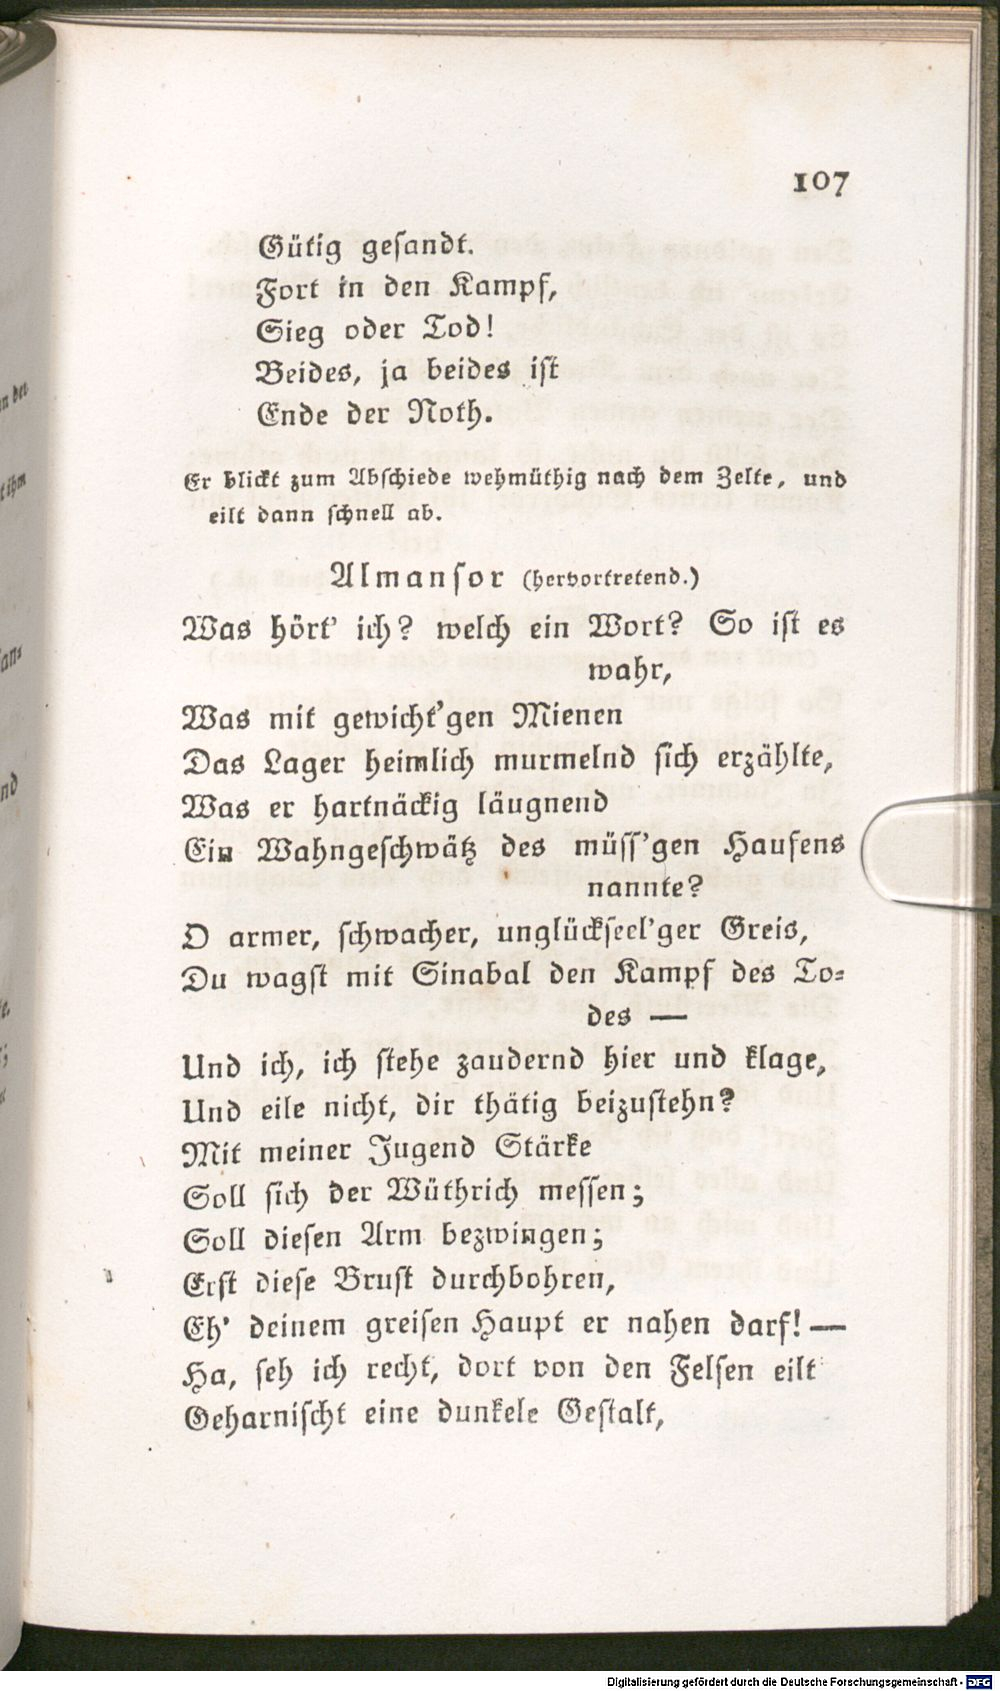 107
Gütig gesandt.
Fort in den Kampf,
Sieg oder Tod!
Beides, ja beides ist
Ende der Noth.
Er blickt zum Abschiede wehmüthig nach dem Zelte, und
eilt dann schnell ab.
Almansor (hervortretend.)
Was hört' ich? welch ein Wort? So ist es
wahr,
Was mit gewicht'gen Mienen
Das Lager heimlich murmelnd sich erzählte,
Was er hartnäckig läugnend
Ein Wahngeschwätz des müss'gen Haufens
nannte?
O armer, schwacher, unglückseel'ger Greis,
Du wagst mit Sinabal den Kampf des To-
des —
Und ich, ich stehe zaudernd hier und klage,
Und eile nicht, dir thätig beizustehn?
Mit meiner Jugend Stärke
Soll sich der Wüthrich messen;
Soll diesen Arm bezwingen;
Erst diese Brust durchbohren,
Eh' deinem greisen Haupt er nahen darf! —
Ha, seh ich recht, dort von den Felsen eilt
Geharnischt eine dunkele Gestalt,
Digitalisierung gefördert durch die Deutsche Forschungsgemeinschaft - DFG